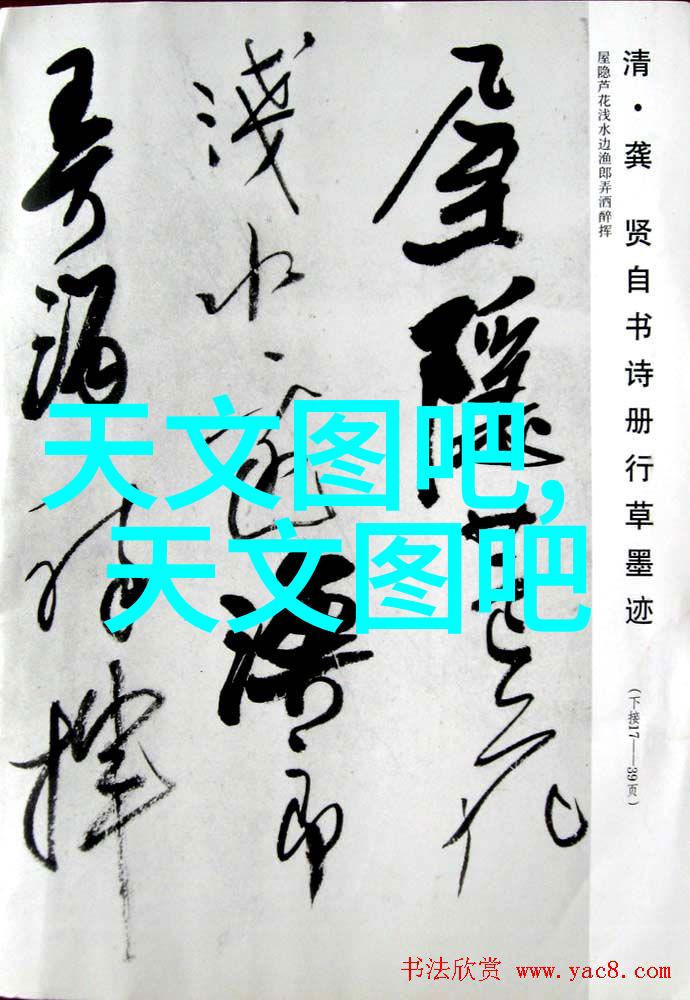 清·龚 贤自书诗册行草墨迹
(下接17——39页)
屋隐芦花浅水边渔郎弄洒醉挥
屋隱蘆花
淺水邊漁郎
弄酒醉揮
天文图吧,
天文图吧
书法欣赏 www.yac8.com